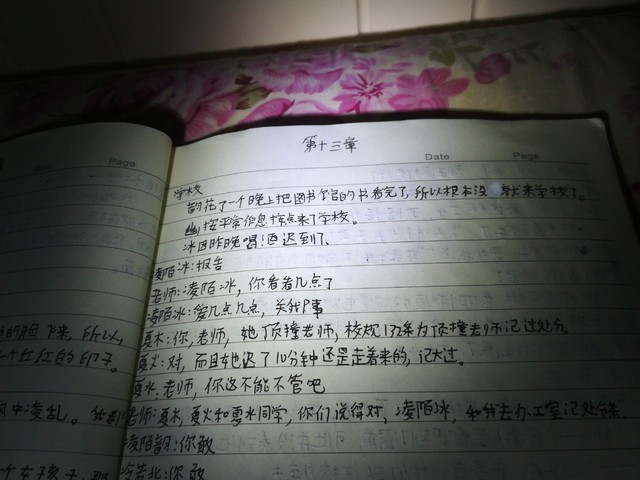 第十三章
Date Page
Page
学校
韵花了一个晚上把图书馆的书看完了,所以根本没 就来学校了。
幽按平常作息按点来了学校。
冰因昨晚喝!酒迟到了。
凌陌冰:报告
老师:凌陌冰,你看看几点了
凌陌冰:爱几点几点,关我P事
夏木:你,老师,她顶撞老师,校规132条为顶撞老师记过处分。
夏火:对,而且她迟了10分钟还是走着来的,记大过。
夏水:老师,你这不能不管吧
老师:夏木,夏火和夏水同学,你们说得对,凌陌冰,和我去办工室记处分
凌陌韵:你敢
若北:你敢
的脸 下来,所以,
个红红的印子。
风中凌乱。
个女孩子,那